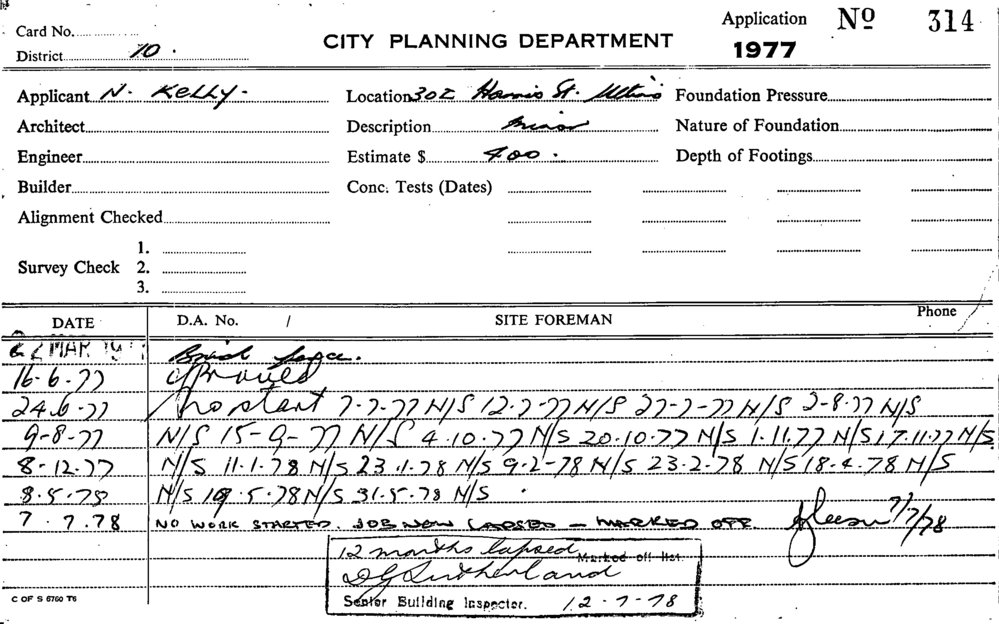 Card No.
District 10.
CITY PLANNING DEPARTMENT
Application Nº 314
1977
Applicant N. KELLY. Location 302 Harris St. Ultimo Foundation Pressure
Architect Description Minor Nature of Foundation
Engineer Estimate $ 400. Depth of Footings
Builder Conc. Tests (Dates)
Alignment Checked
1.
Survey Check 2.
3.
DATE D.A. No. / SITE FOREMAN Phone
MAR Brick
16-6-77 approved
24-6-77 no start 7-7-77 N/S 12-7-77 N/S 27-7-77 N/S 2-8-77 N/S
9-8-77 N/S 15-9-77 N/S 4.10.77 N/S 20.10.77 N/S 1.11.77 N/S 17.11.77 N/S.
8-12.77 N/S 11.1.78 N/S 23.1.78 N/S 9-2-78 N/S 23.2.78 N/S 18.4.78 N/S
8.5.78 N/S 19.5.78 N/S 31.5.78 N/S
7.7.78 NO WORK STARTED. JOB NOW LAPSED – MARKED OFF. 7/7/78
12 months lapsed Marked off list.
Sutherland
Senior Building Inspector. 12-7-78
C OF S 6760 T6